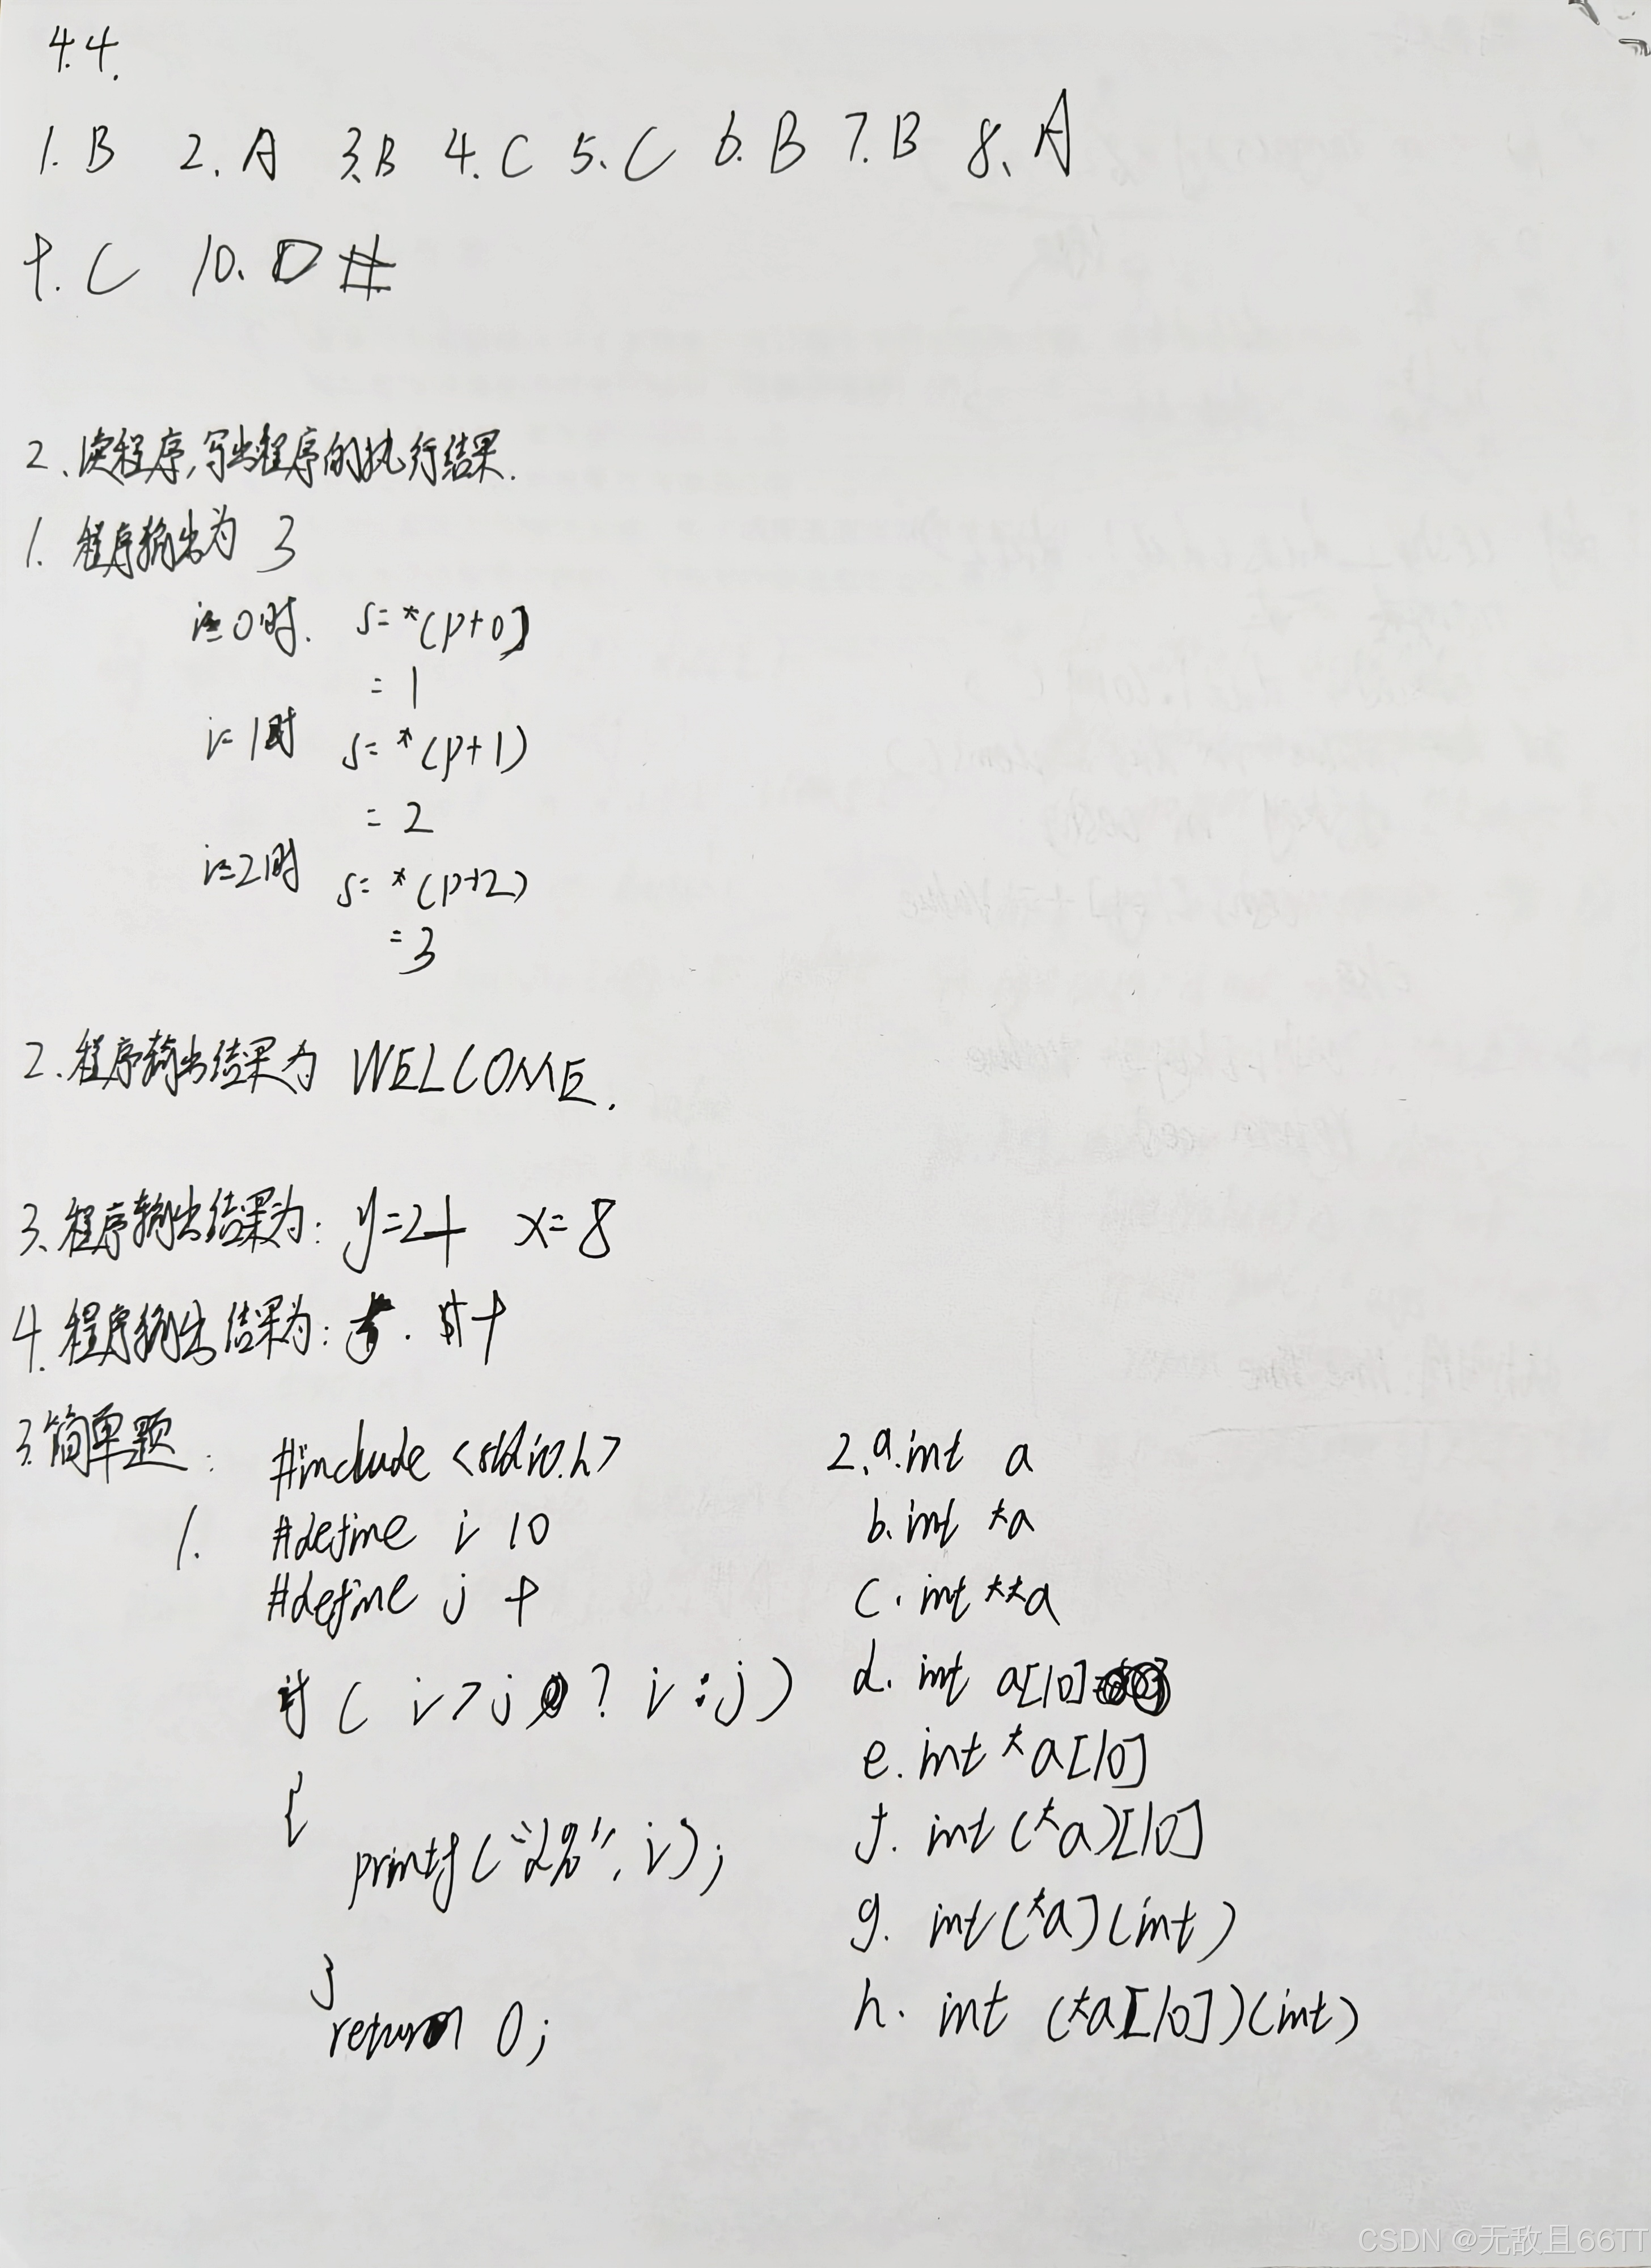 4.4.
1. B 2. A 3. B 4. C 5. C 6. B 7. B 8. A
9. C 10. D #
2、读程序,写出程序的执行结果.
1. 程序输出为 3
i=0时. s=*(p+0)
=1
i=1时 s=*(p+1)
=2
i=2时 s=*(p+2)
=3
2.程序输出结果为 WELCOME.
3.程序输出结果为: y=24 x=8
4.程序输出结果为:
3.简单题:
1. #include <stdio.h>
#define i 10
#define j 9
if ( i>j ? i:j)
{
printf("d%", i);
}
return 0;
2. a. int a
b. int *a
c. int **a
d. int a[10]
e. int *a[10]
f. int (*a)[10]
g. int(*a)(int)
h. int (*a[10])(int)
CSDN @无敌且66TT